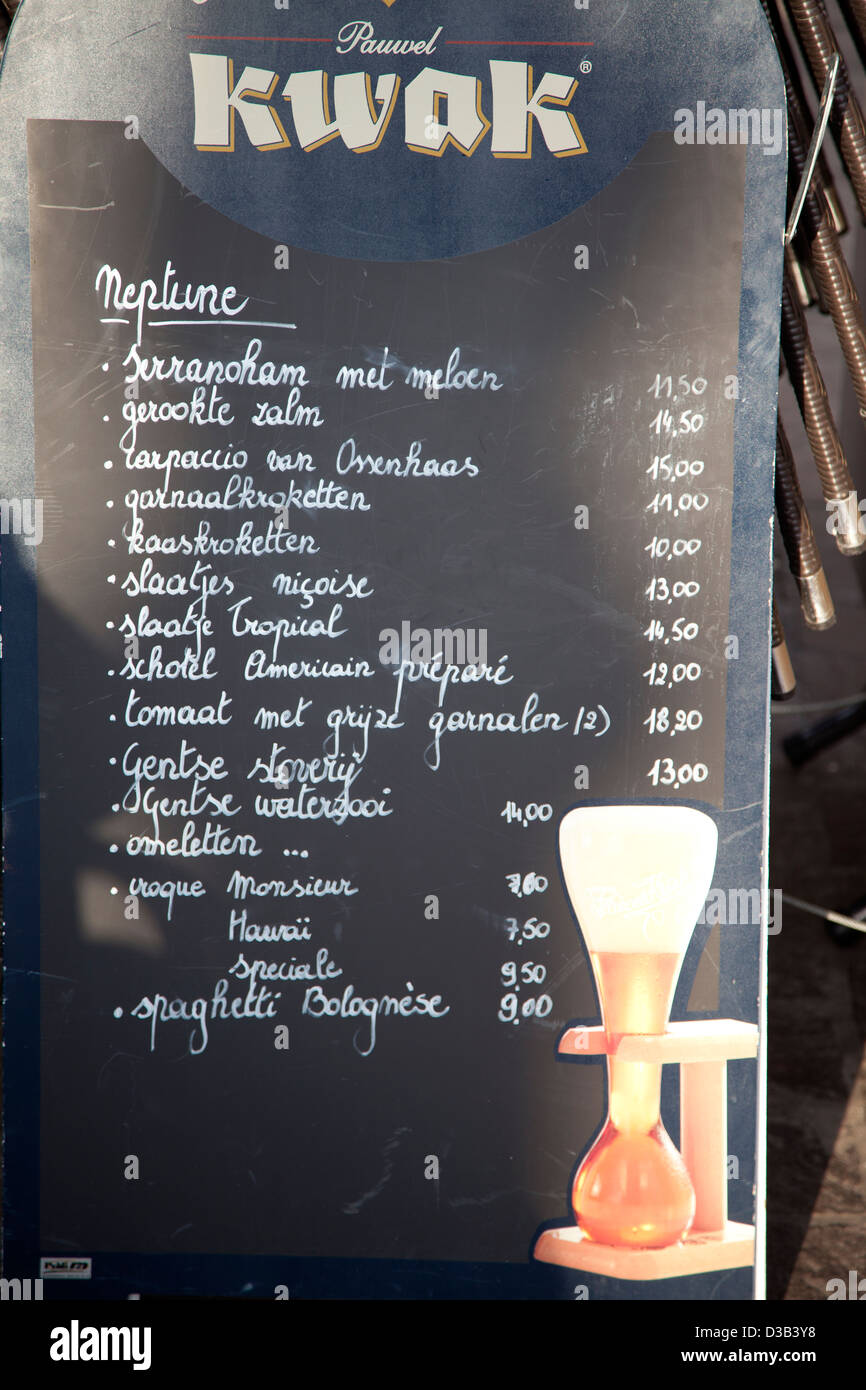 Pauwel
KWAK®
Neptune
· Serranoham met meloen 11,50
· gerookte zalm 14,50
· carpaccio van Ossenhaas 15,00
· garnaalkroketten 11,00
· kaaskroketten 10,00
· slaatjes niçoise 13,00
· slaatje Tropical 14,50
· schotel Americain préparé 12,00
· tomaat met grijze garnalen (2) 18,20
· Gentse stoverij 13,00
· Gentse waterzooi 14,00
· omeletten ...
· croque Monsieur 7,00
Hawaï 7,50
speciale 9,50
· spaghetti Bolognèse 9,00
alamy
Image ID: D3B3Y8
www.alamy.com